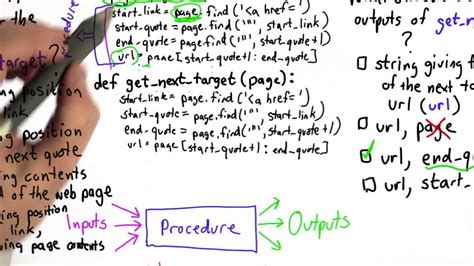 the
start_link = page.find('<a href=')
start_quote = page.find('"',
end_quote = page.find('"',
url = page[start_quote+1: end_quote]
procedure
target?
position
position
next quote
contents
d of the web page
ing position
link
ing page contents
def get_next_target (page):
start_link = page.find('<a href=')
start_quote = page.find('"', start_link)
end_quote = page.find('"', start_quote+1)
url = page[start_quote+1: end_quote]
Inputs
Procedure
Outputs
outputs of get_n
?
string giving
of the next
url (url)
url, page
url, end_q
url, start_